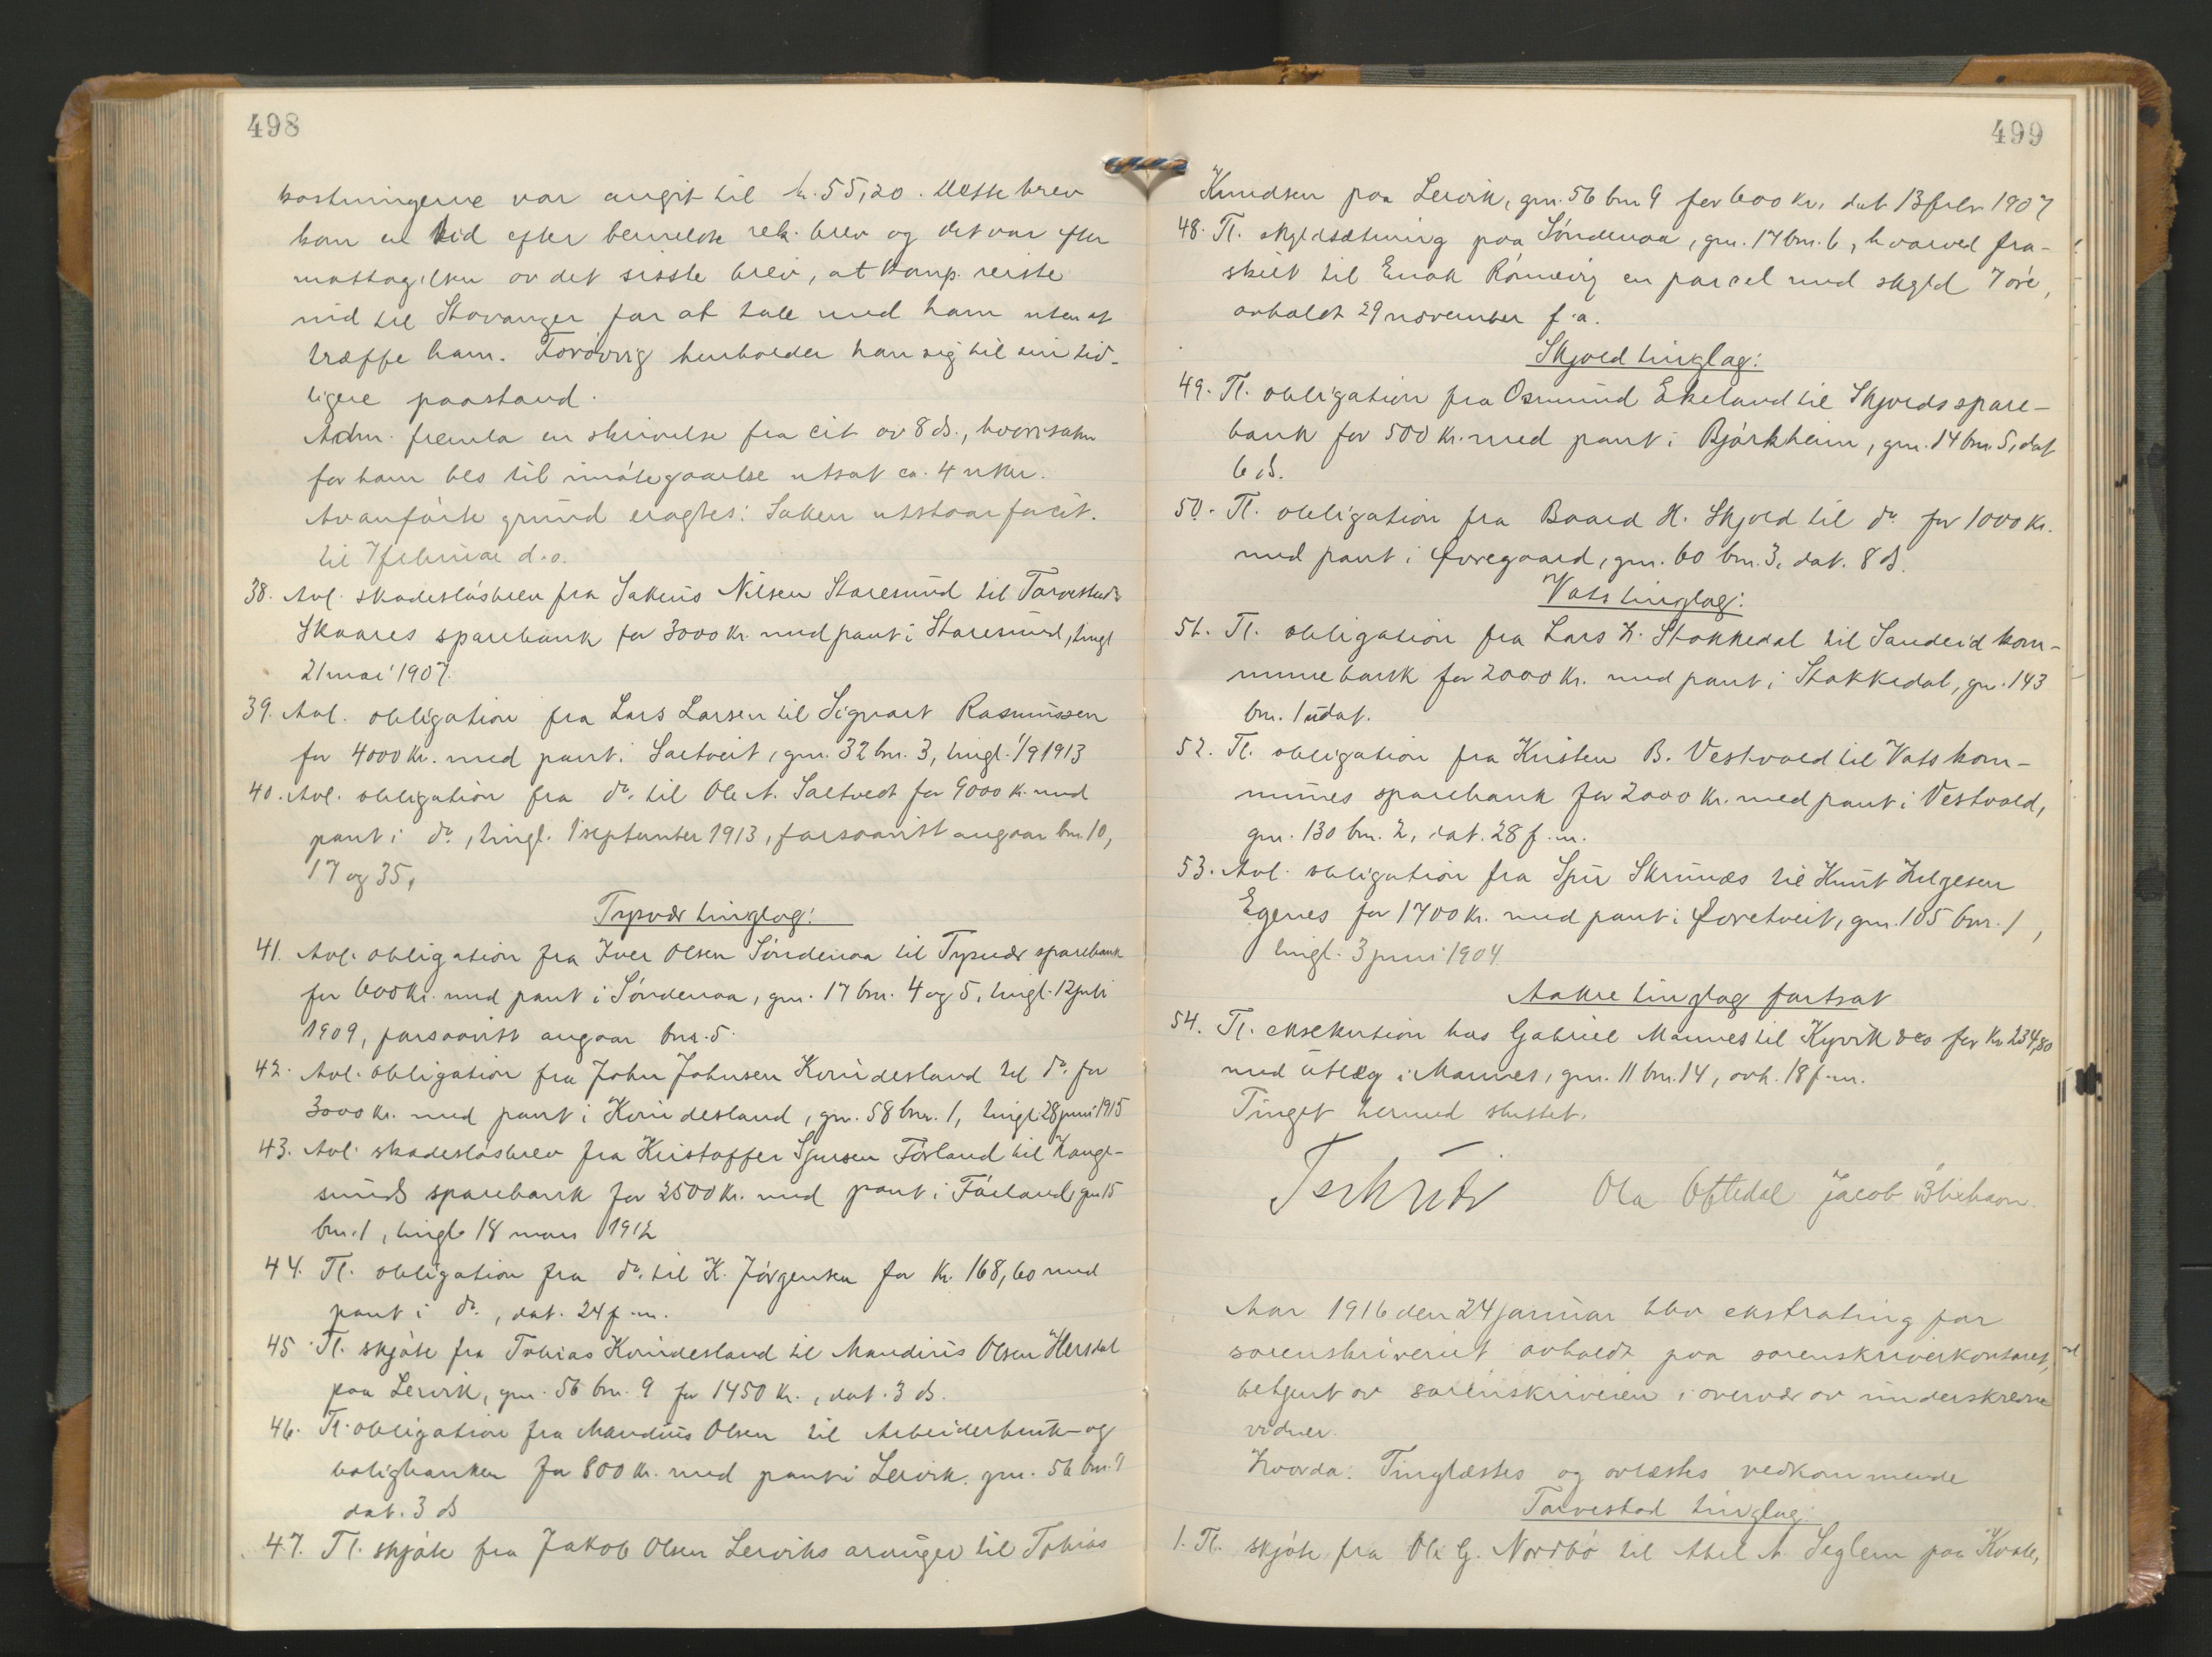 498
kostningerne var angit til kr. 55,20. Dette brev
kom en tid efter bemeldte rek. brev og det var efter
mottagelsen av det sisste brev, at komp. reiste
ind til Stavanger for at tale med ham uten at
træffe ham. Forøvrig henholder han sig til sin tid-
ligere paastand.
Adm. fremla en skrivelse fra cit av 8 ds., hvori saken
for ham bes til imøtegaaelse utsat ca. 4 uker.
Av anførte grund eragtes: Saken utstaar for cit.
til 7 februar d.a.
38. Avl. skadesløsbrev fra Sakeus Nilsen Staresund til Torvestad
Skaares sparebank for 3000 kr. med pant i Staresund, tingl
21 mai 1907.
39. Avl. obligation fra Lars Larsen til Sigvart Rasmussen
for 4000 kr. med pant i Saltveit, gnr. 32 bnr. 3, tingl. 1/9 1913
40. Avl. obligation fra do. til Ole A. Saltvedt for 9000 kr. med
pant i do., tingl. 1 september 1913, forsaavitt angaar bnr. 10,
17 og 35.
Tysvær tinglag:
41. Avl. obligation fra Iver Olsen Søndenaa til Tysvær sparebank
for 600 kr. med pant i Søndenaa, gnr. 17 bnr. 4 og 5, tingl. 12 juli
1909, forsaavitt angaar bnr. 5.
42. Avl. obligation fra John Johnsen Kvindesland til do. for
3000 kr. med pant i Kvindesland, gnr. 58 bnr. 1, tingl. 28 juni 1915
43. Avl. skadesløsbrev fra Kristoffer Sjursen Førland til Hauge-
sunds sparebank for 2500 kr. med pant i Førland, gnr 15
bnr. 1, tingl. 18 mars 1912
44. Tl. obligation fra do. til K. Jørgensen for kr. 168,60 med
pant i do., dat. 24 f.m.
45 Tl. skjøte fra Tobias Kvindesland til Mandius Olsen Herstal
paa Lervik, gnr. 56 bnr. 9 for 1450 kr., dat. 3 ds.
46. Tl. obligation fra Mandius Olsen til Arbeiderbruk- og
boligbanken for 800 kr. med pant i Lervik, gnr. 56 bnr. 9
dat. 3 ds
47. Tl. skjøte fra Jakob Olsen Lerviks arvinger til Tobias
499
Knudsen paa Lervik, gnr. 56 bnr 9 for 600 kr. dat 13 febr 1907
48. Tl. skyldsætning paa Søndenaa, gnr. 17 bnr. 6, hvorved fra-
skilt til Enok Rønnevig en parcel med skyld 7 øre,
avholdt 29 november f.a.
Skjold tinglag:
49. Tl. obligation fra Osmund Ekeland til Skjolds spare-
bank for 500 kr. med pant i Bjørkheim, gnr. 14 bnr 5, dat
6 ds.
50. Tl. obligation fra Baard H. Skjold til do for 1000 kr.
med pant i Øvregaard, gnr. 60 bnr. 3, dat. 8 ds.
Vats tinglag:
51. Tl. obligation fra Lars H. Stakkedal til Sandeid kom-
munebank for 2000 kr. med pant i Stakkedal, gnr. 143
bnr. 1 udat.
52. Tl. obligation fra Kristen B. Vestvold til Vats kom-
munes sparebank for 2000 kr. med pant i Vestvold,
gnr. 130 bnr. 2, dat. 28 f.m.
53. Avl. obligation fra Sjur Skrunæs til Knut Helgesen
Egenes for 1700 kr. med pant i Øvretveit, gnr. 105 bnr. 1,
tingl. 3 juni 1904
Aakre tinglag fortsat
54. Tl. eksekution hos Gabriel Mannes til Kyvik & co for kr 234,80
med utlæg i Mannes, gnr. 11 bnr. 14, avh. 18 f.m.
Tinget hermed sluttet.
Ola Oftedal Jacob Blikhavn.
Aar 1916 den 24 januar blev ekstrating for
sorenskriveriet avholdt paa sorenskriverkontoret,
betjent av sorenskriveren i overvær av underskrevne
vidner.
Hvorda: Tinglæstes og avlæstes vedkommende
Torvestad tinglag:
1. Tl. skjøte fra Ole G. Nordbø til Abel A. Seglem paa Kvale,